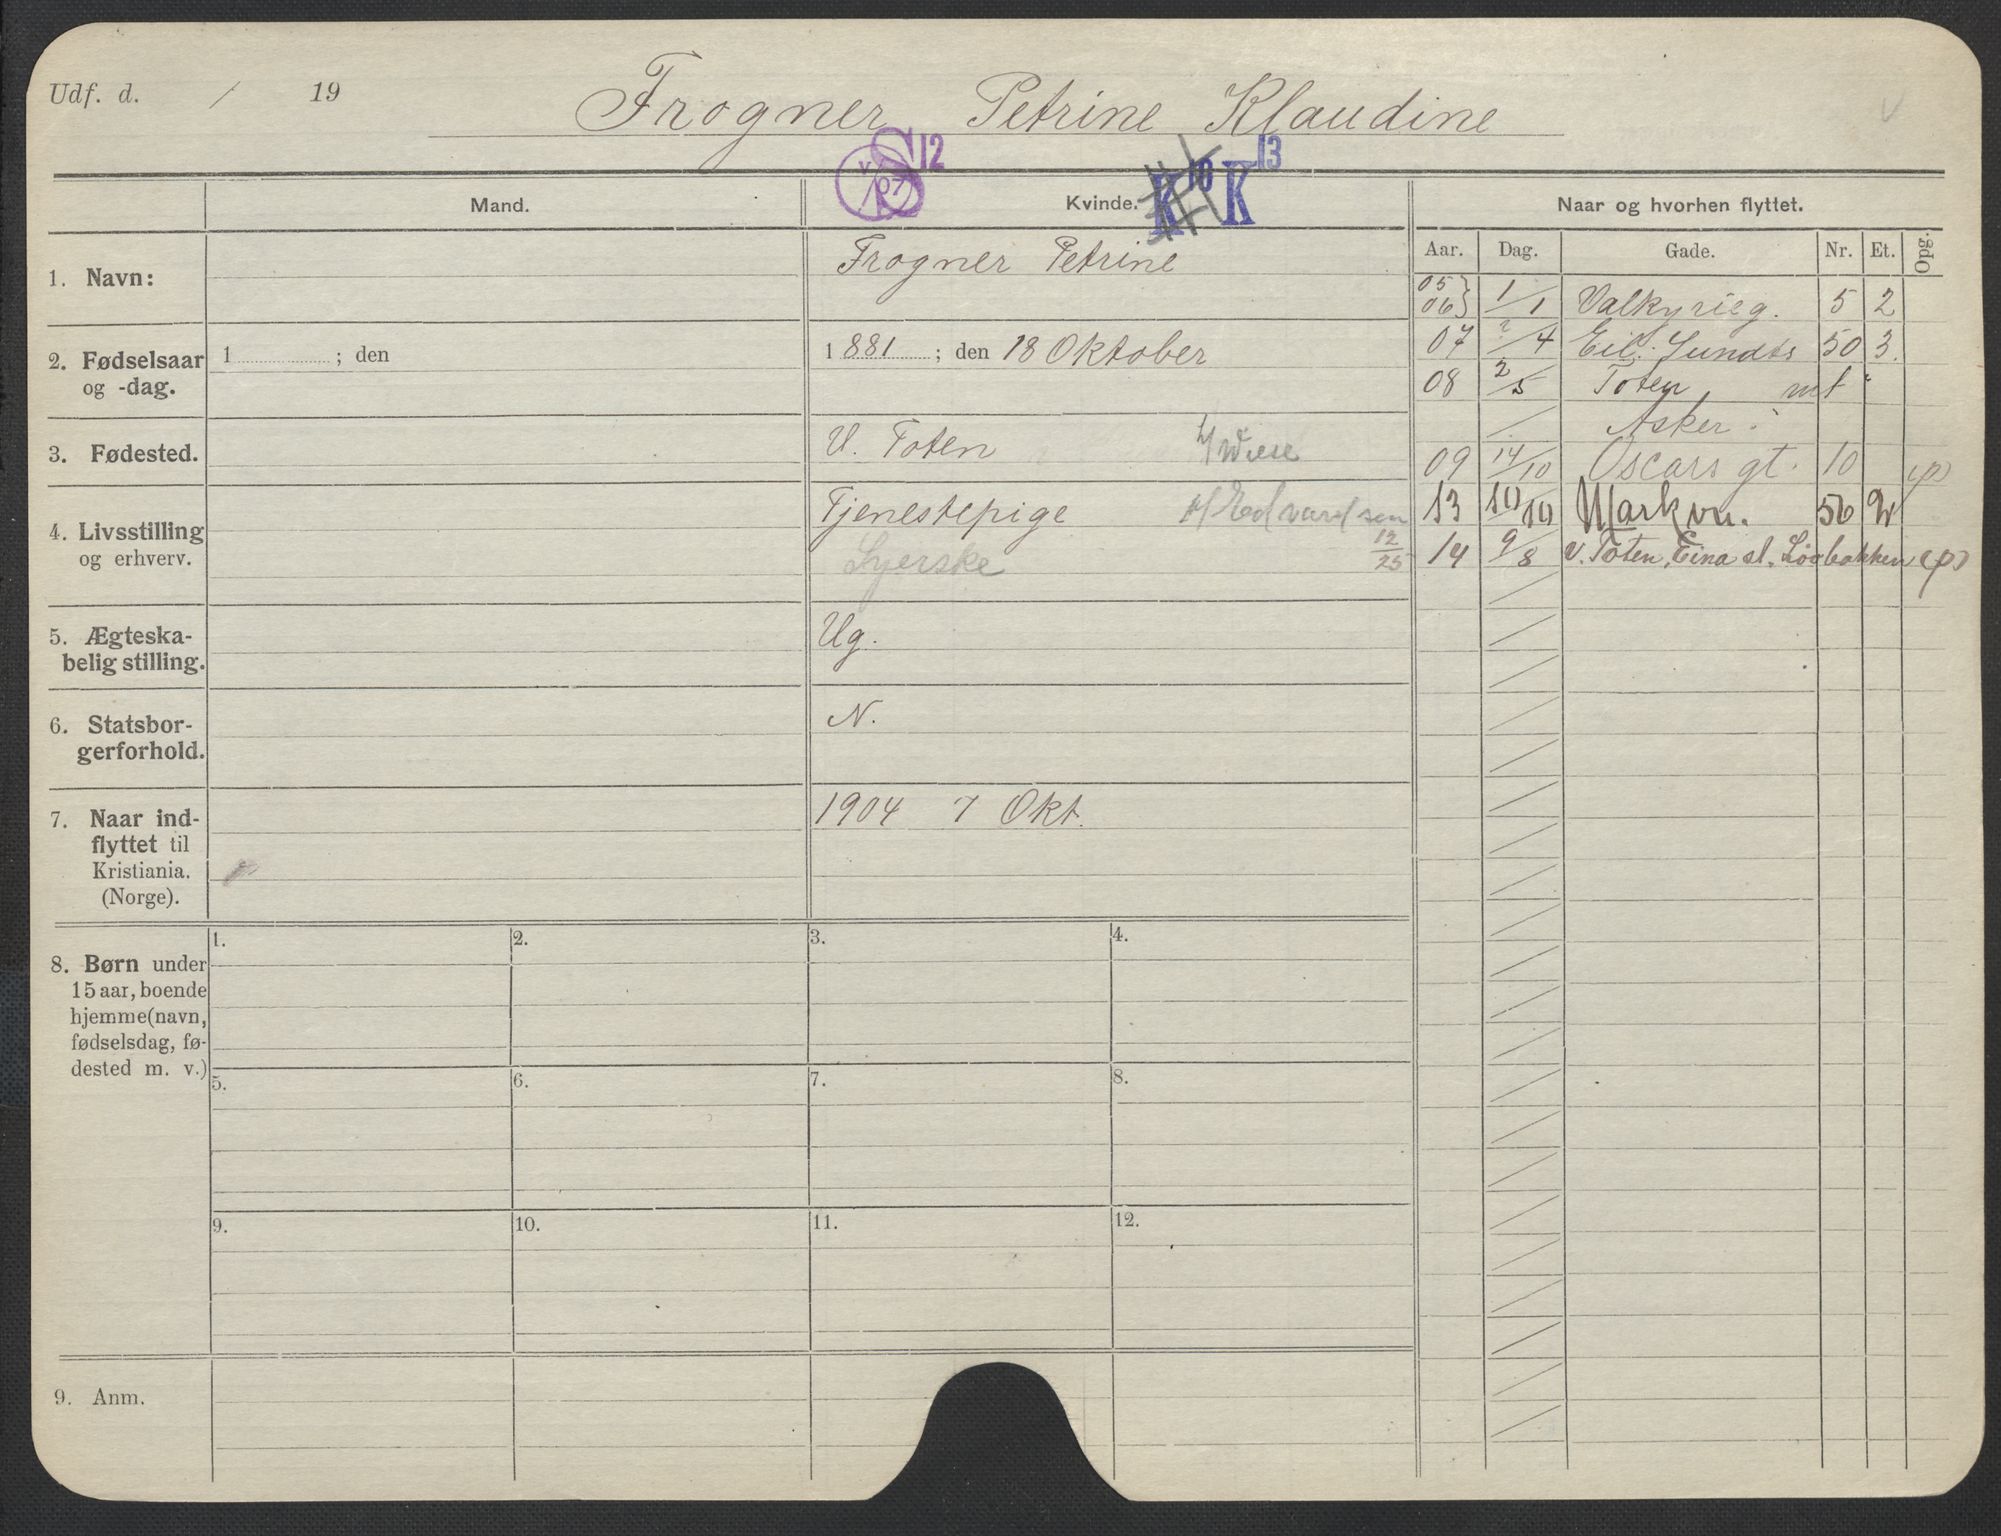 Udf. d. / 19
Frogner Petrine Klaudine
V
V/07 S12 K10 K13
Mand. Kvinde. Naar og hvorhen flyttet.
Aar. Dag. Gade. Nr. Et. Opg.
1. Navn: Frogner Petrine
2. Fødselsaar og -dag.
1 ; den
1881 ; den 18 Oktober
3. Fødested. V. Toten h/ Wiese
4. Livsstilling og erhverv.
Tjenestepige h/ Edvardsen
Syerske 12/25
5. Ægteska-
belig stilling.
Ug.
6. Statsbor-
gerforhold.
N.
7. Naar ind-
flyttet til
Kristiania.
(Norge).
1904 7 Okt.
05} 06} 1/1 Valkyrieg. 5 2
07 ?/4 Eil. Sundts 50 3.
08 2/5 Toten mt
/ Asker
09 14/10 Oscars gt. 10 (p)
13 10/10 Markvn. 56
14 9/8 V. Toten, Eina st. Løvbakken (p)
8. Børn under
15 aar, boende
hjemme (navn,
fødselsdag, fø-
dested m. v.)
1. 2. 3. 4.
5. 6. 7. 8.
9. 10. 11. 12.
9. Anm.